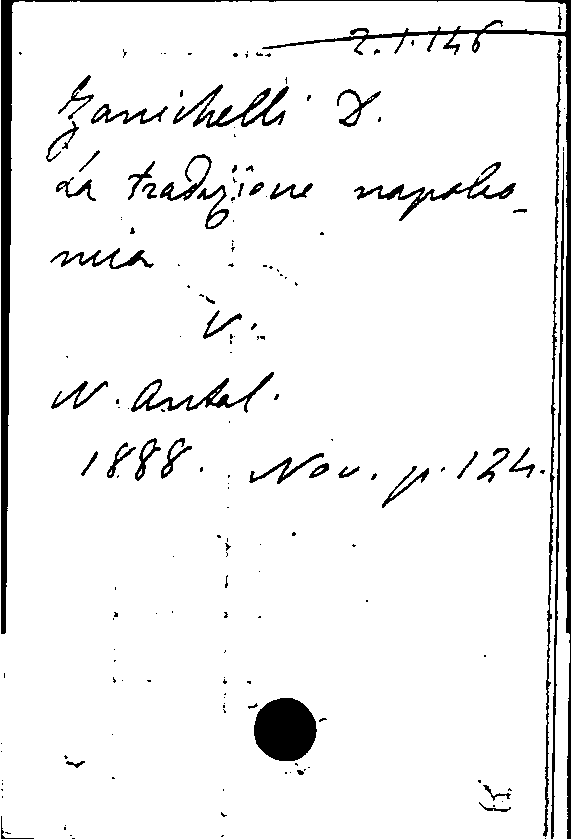 2.1.146
Zanichelli D.
La tradizione napoleo-
nica
V.
N. Antol.
1888. Nov. p. 124.